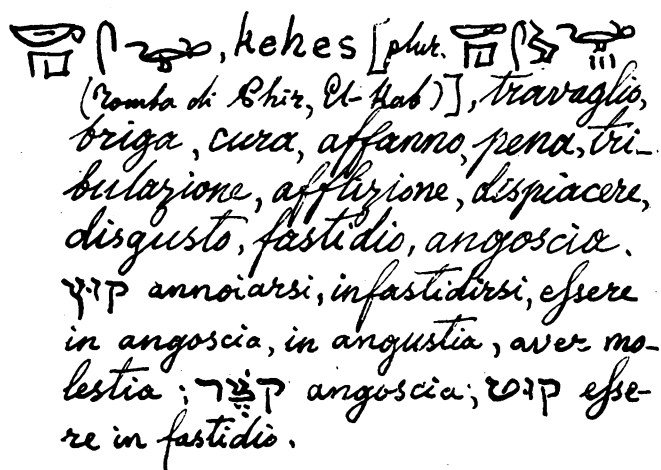 , kehes [plur.
(Tomba di Chir, El-Kab)], travaglio,
briga, cura, affanno, pena, tri-
bulazione, afflizione, dispiacere,
disgusto, fastidio, angoscia.
קוץ annoiarsi, infastidirsi, eſsere
in angoscia, in angustia, aver mo-
lestia; קֹצֶר angoscia; קוט eſse-
re in fastidio.